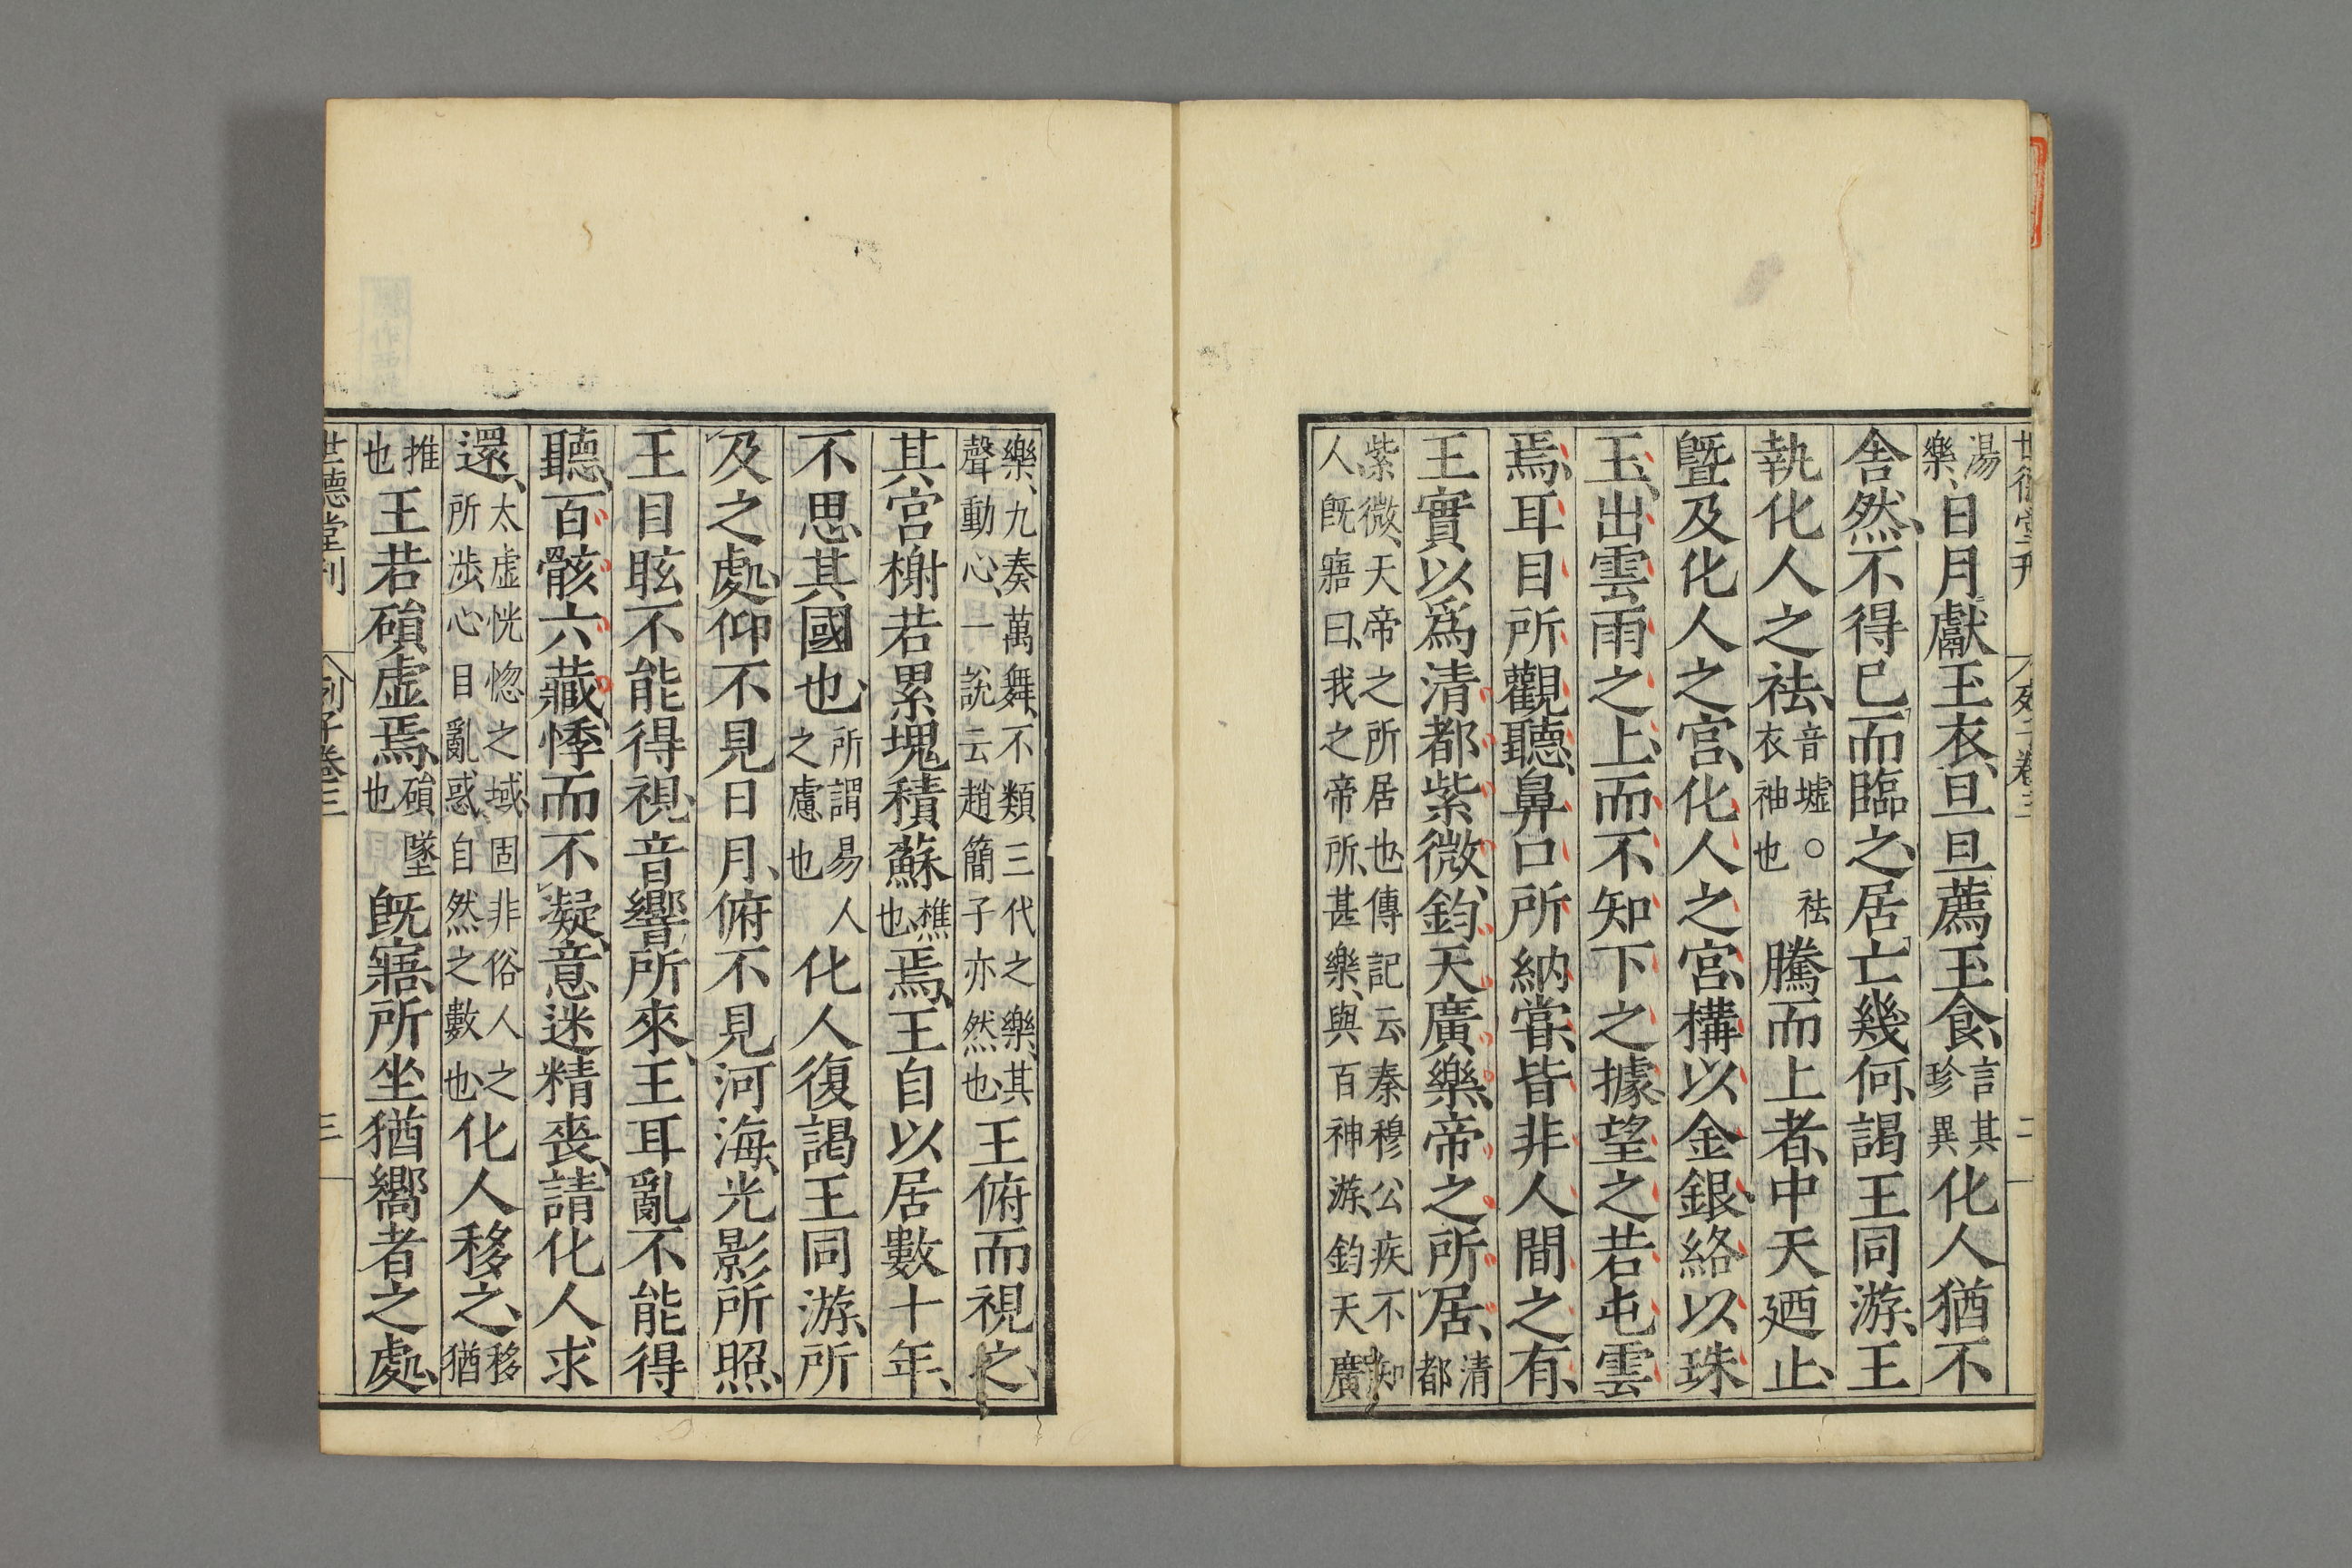 世德堂刊 列子卷三 二
湯樂、日月獻玉衣、旦旦薦玉食、言其珍異化人猶不
舍然、不得已而臨之、居亡幾何、謁王同游、王
執化人之袪、音墟○袪衣袖也騰而上者、中天廼止、
曁及化人之宮、化人之宮、構以金銀、絡以珠
玉、出雲雨之上、而不知下之據、望之若屯雲
焉、耳目所觀聽、鼻口所納嘗、皆非人間之有、
王實以爲清都紫微、鈞天廣樂、帝之所居、清都
紫微、天帝之所居也、傳記云、秦穆公疾不知人、旣寤曰、我之帝所、甚樂、與百神游、鈞天廣
樂、九奏萬舞、不類三代之樂、其聲動心、一說云趙簡子亦然也、王俯而視之、
其宮榭若累塊積蘇樵也、焉、王自以居數十年、
不思其國也、所謂易人之慮也化人復謁王同游、所
及之處、仰不見日月、俯不見河海、光影所照、
王目眩不能得視、音響所來、王耳亂不能得
聽、百骸六藏、悸而不凝、意迷精喪、請化人求
還、太虛恍惚之域、固非俗人之所涉、心目亂惑、自然之數也、化人移之、移猶
推也王若磒虛焉、磒墜也旣寤、所坐猶嚮者之處、
世德堂刊 列子卷三 三